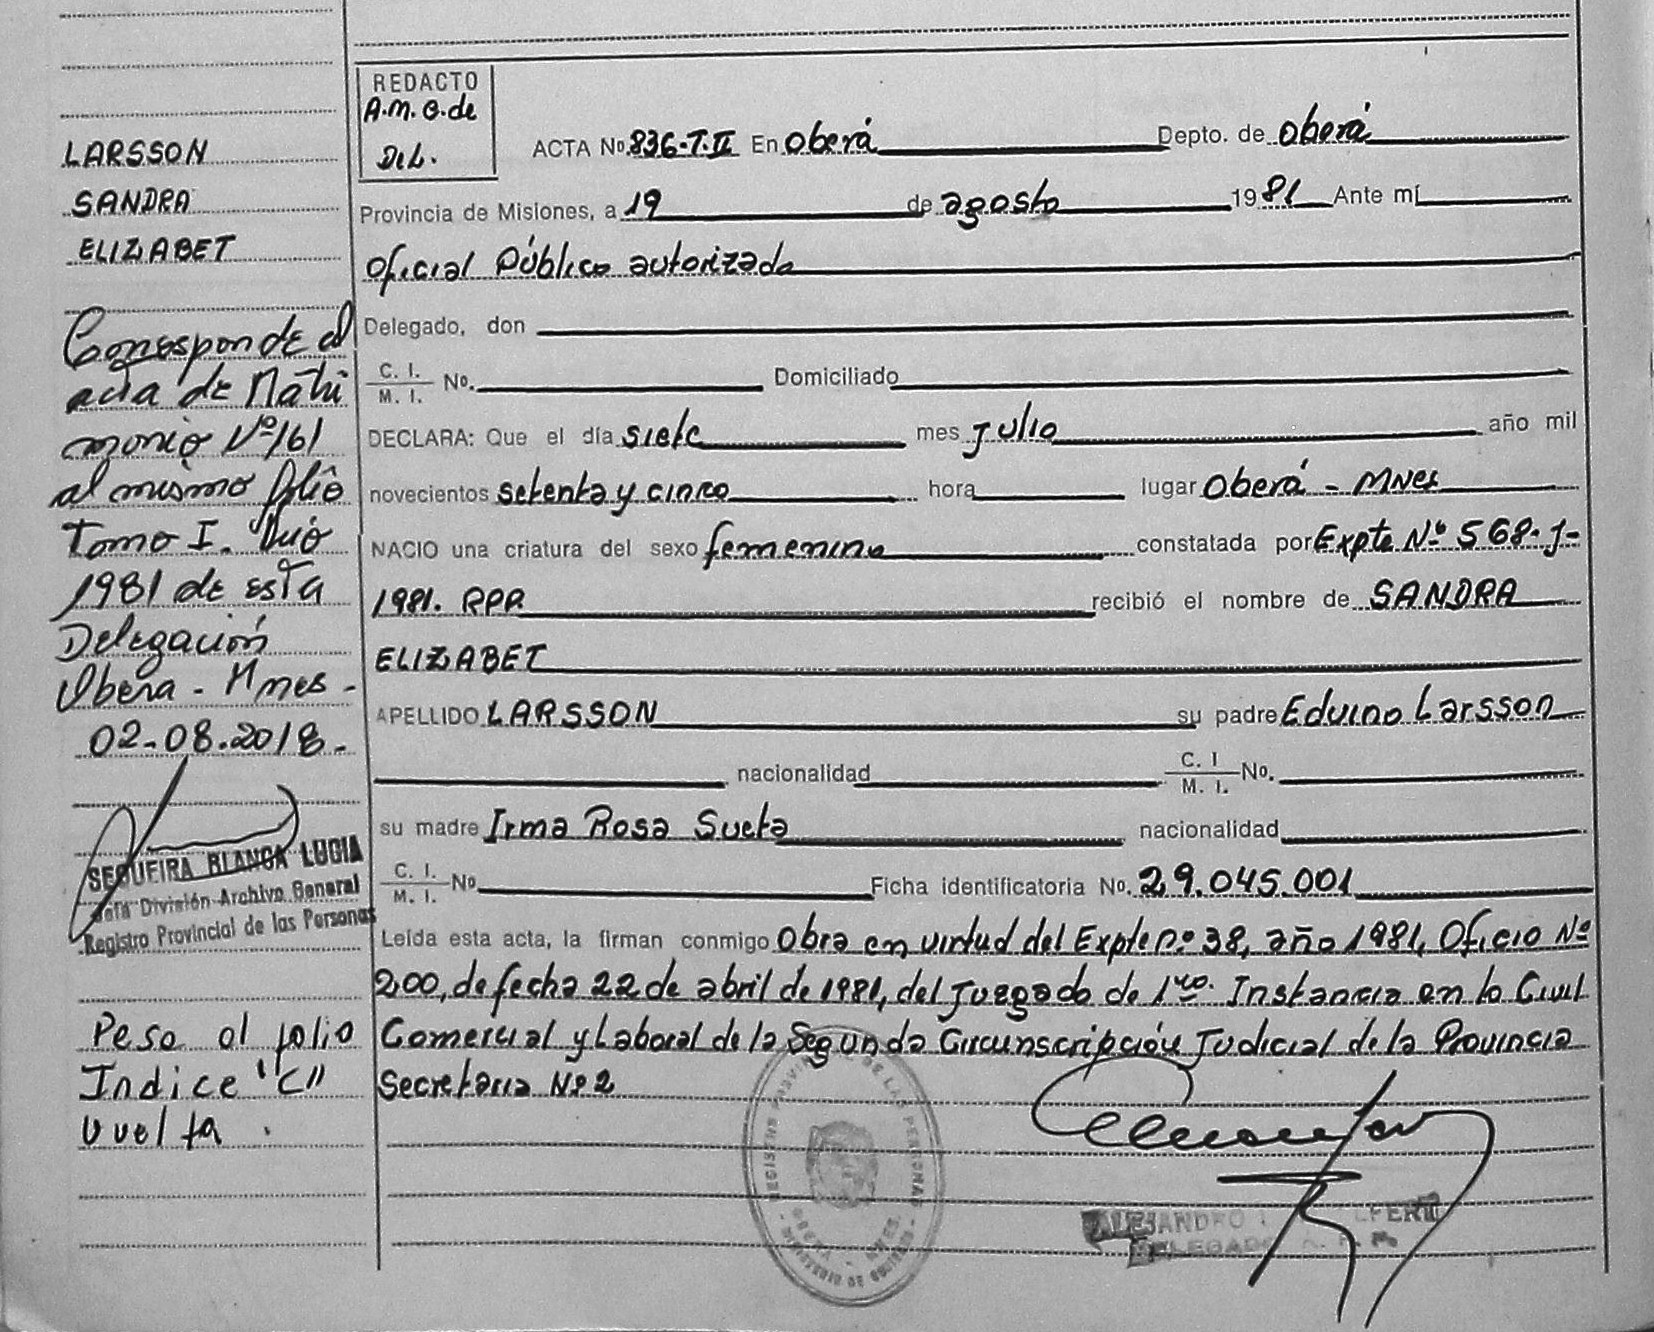 LARSSON
SANDRA
ELIZABET
Corresponde al
acta de Matri
monio Nº 161
al mismo folio
Tomo I. Año
1981 de esta
Delegación
Oberá - Mnes -
02-08.2018.-
SEQUEIRA BLANCA LUCIA
Jefa División Archivo General
Registro Provincial de las Personas
Pesa al folio
Indice "C"
Vuelta.
REDACTO
A.M.G. de
Del.
ACTA Nº 836-T.II En Oberá Depto. de Oberá
Provincia de Misiones, a 19 de agosto 1981 Ante mí
Oficial Público autorizado
Delegado, don
C. I. / M. I. Nº. Domiciliado
DECLARA: Que el día siete mes Julio año mil
novecientos setenta y cinco hora lugar Oberá - MNes
NACIO una criatura del sexo femenino constatada por Expte Nº 568-J-
1981. RPP recibió el nombre de SANDRA
ELIZABET
APELLIDO LARSSON su padre Eduino Larsson
nacionalidad C. I / M. I. Nº.
su madre Irma Rosa Sueta nacionalidad
C. I. / M. I. Nº Ficha identificatoria Nº. 29.045.001
Leída esta acta, la firman conmigo Obra en virtud del Expte nº 38, año 1981, Oficio Nº
200, de fecha 22 de abril de 1981, del Juzgado de 1ro. Instancia en lo Civil
Comercial y Laboral de la Segunda Circunscripción Judicial de la Provincia
Secretaria Nº 2
DE LAS PERSONAS
OBERA
ALEJANDRO
DELEGADO